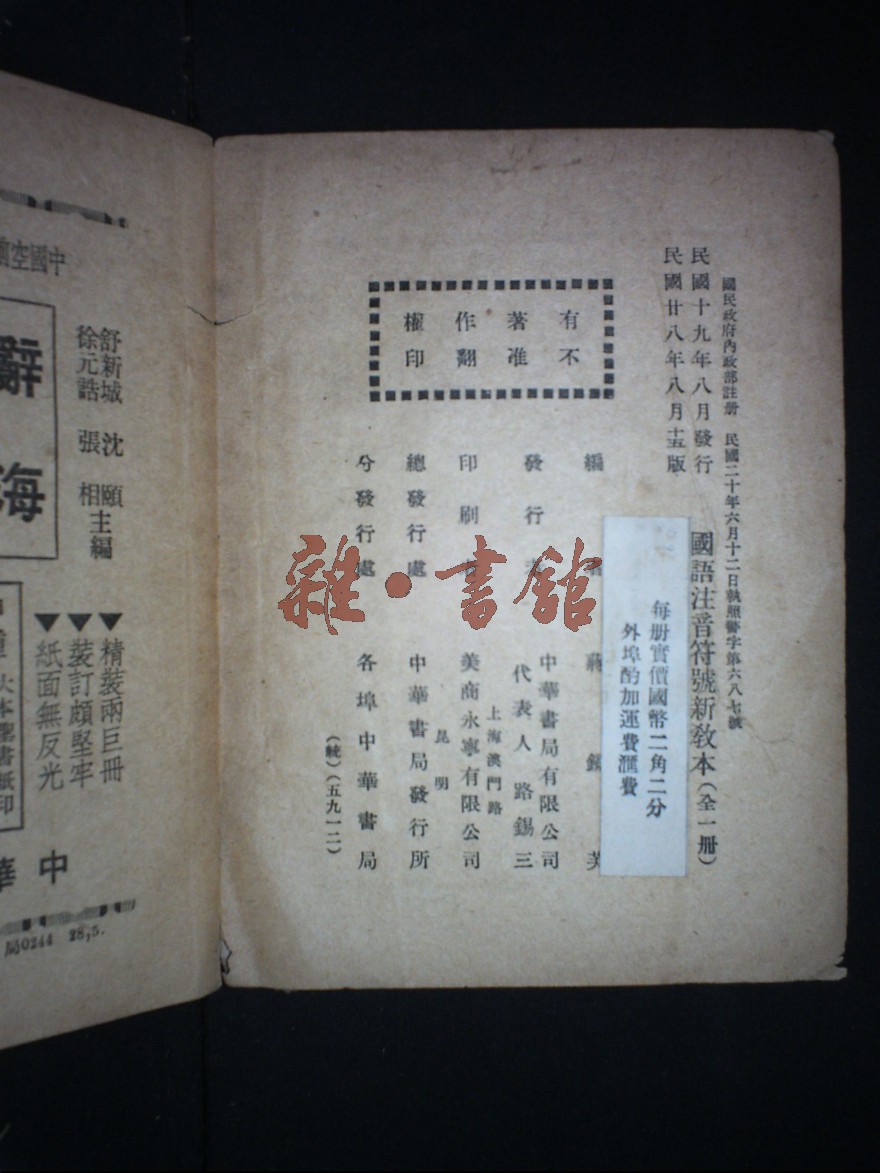 國民政府內政部註册　民國二十年六月十二日執照警字第六八七號
民國十九年八月發行
民國廿八年八月十五版
國語注音符號新教本（全一册）
每册實價國幣二角二分
外埠酌加運費滙費
有著作權
不准翻印
編 蔣 芙
發行 中華書局有限公司
代表人 路錫三
上海澳門路
印刷 美商永寧有限公司
昆明
總發行處 中華書局發行所
分發行處 各埠中華書局
（統）（五九一二）
雜·書館
中國空
辭海
舒新城 沈頤
徐元誥 張相
主編
▼精裝兩巨冊
▼裝訂頗堅牢
▼紙面無反光
中華
局0244 28,5.